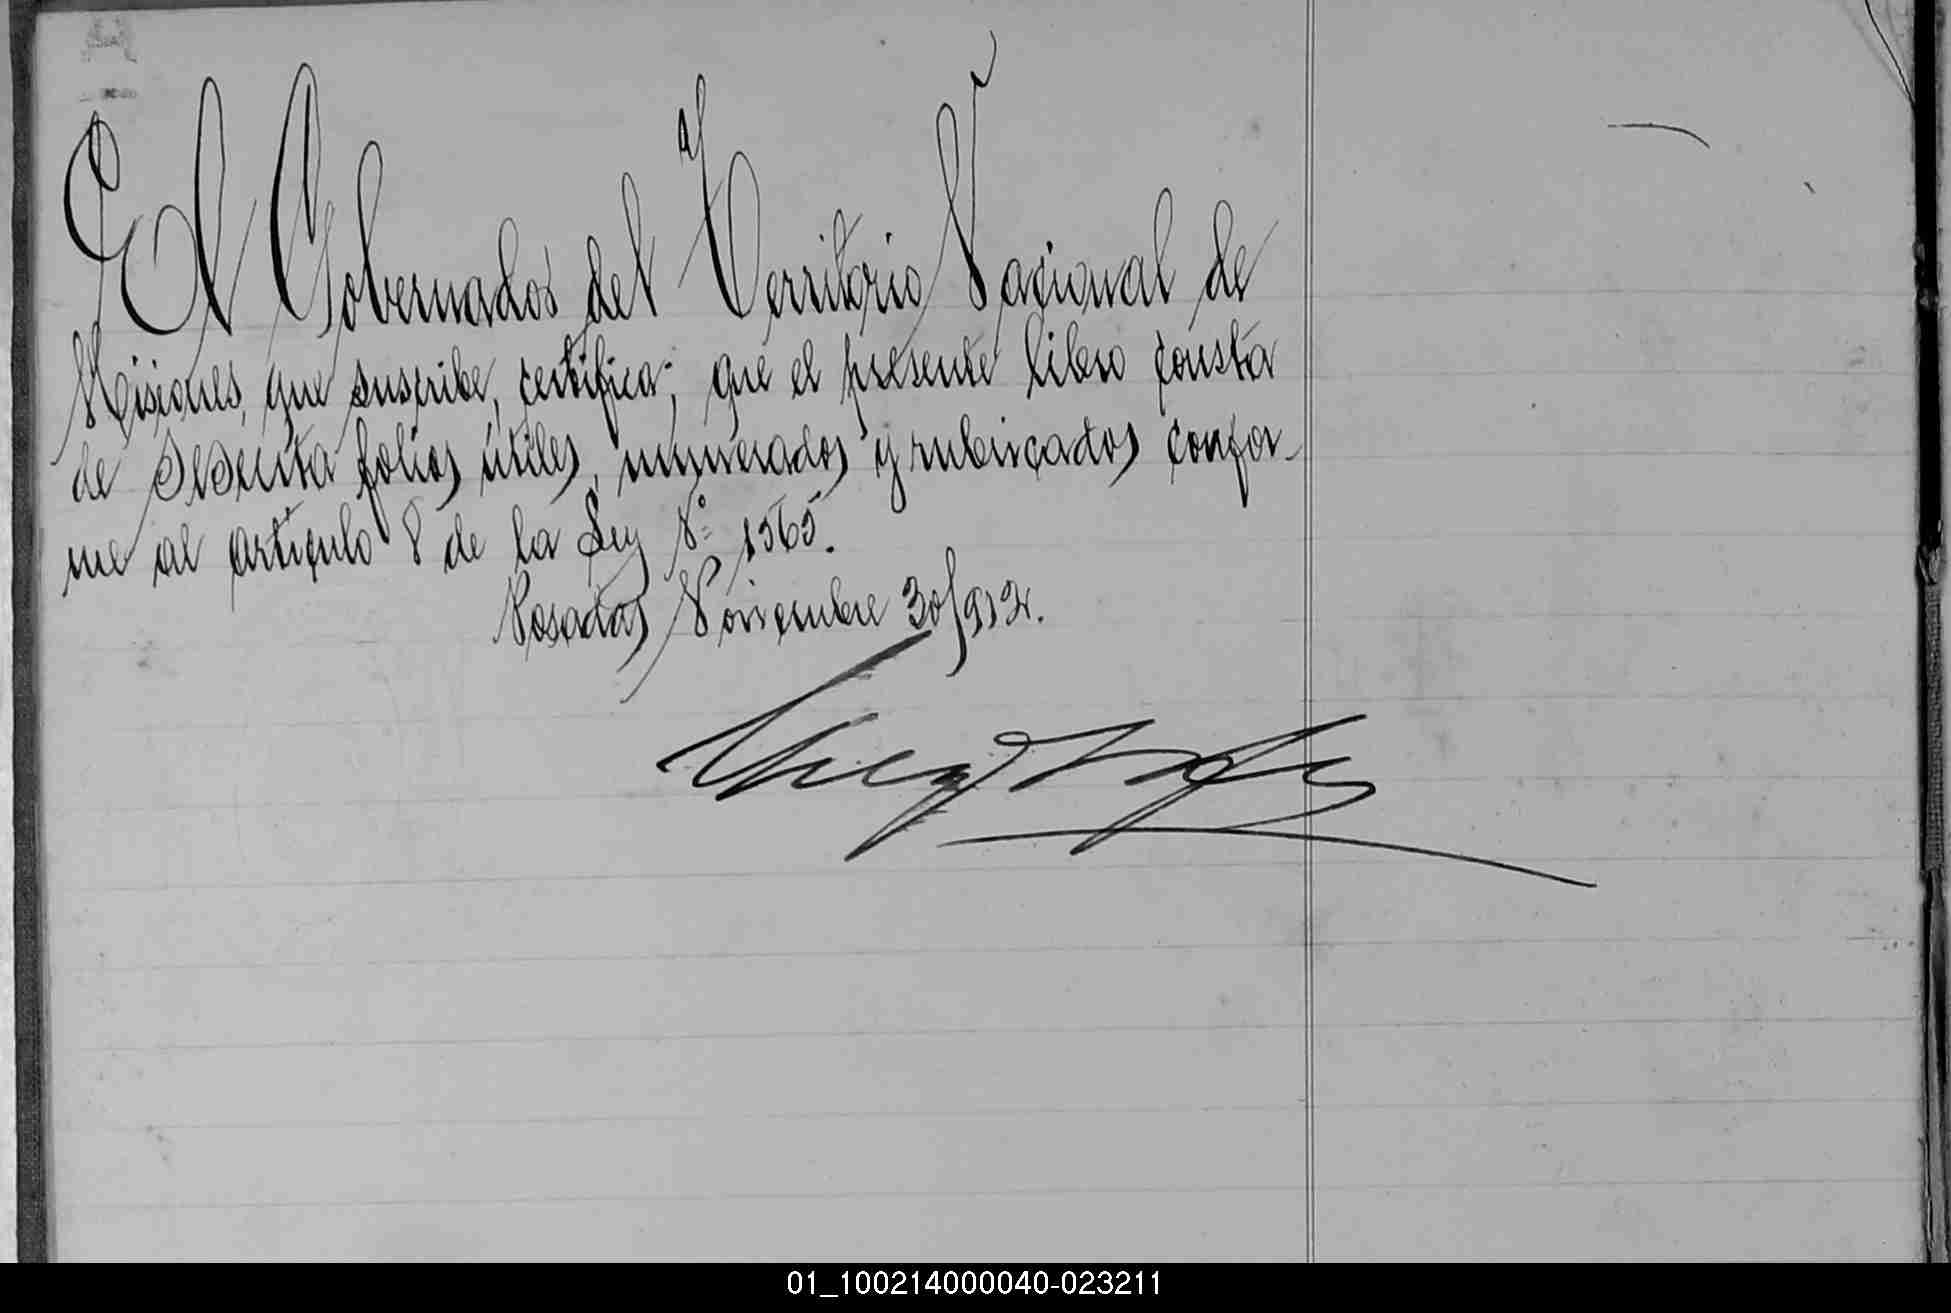 El Gobernador del Territorio Nacional de
Misiones, que suscribe, certifica; que el presente libro consta
de sesenta folios útiles, numerados y rubricados confor-
me al artículo 8 de la Ley Nº 1565.
Posadas Noviembre 30/912.
01_100214000040-023211